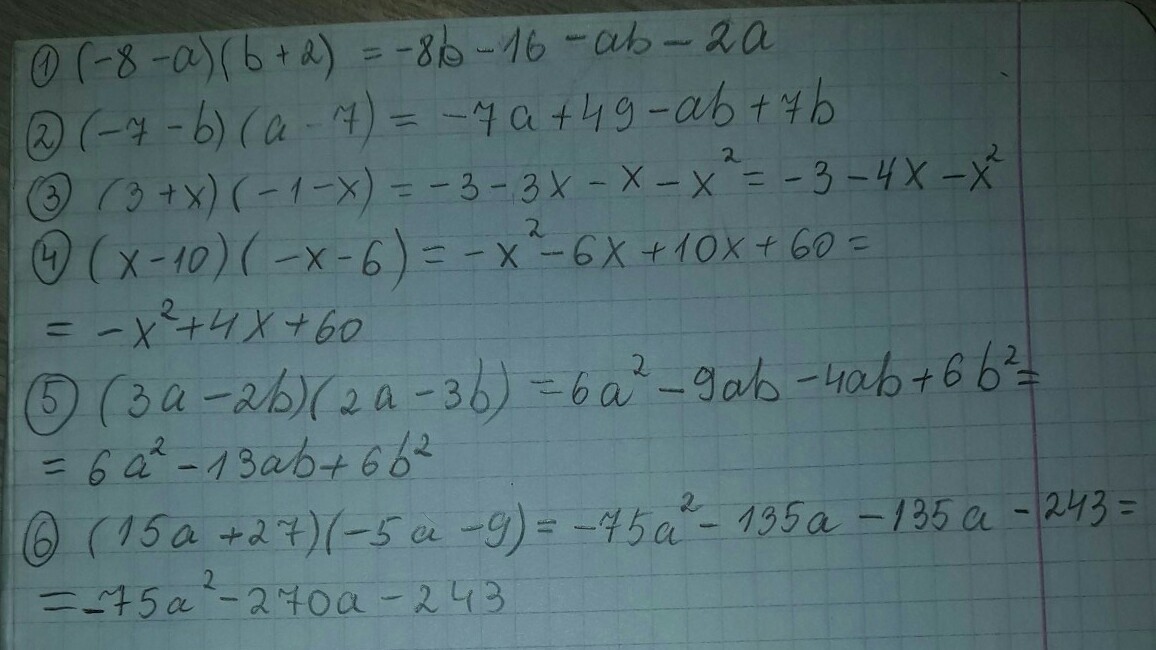 ① (-8 -a)(b+2) = -8b -16 -ab - 2a
② (-7 -b)(a -7) = -7a +49 -ab +7b
③ (3+x)(-1-x) = -3 -3x -x -x² = -3 -4x -x²
④ (x-10)(-x-6) = -x² -6x +10x +60 =
= -x² +4x +60
⑤ (3a -2b)(2a -3b) = 6a² -9ab -4ab +6b² =
= 6a² -13ab +6b²
⑥ (15a +27)(-5a -9) = -75a² - 135a -135a - 243 =
= -75a² -270a -243